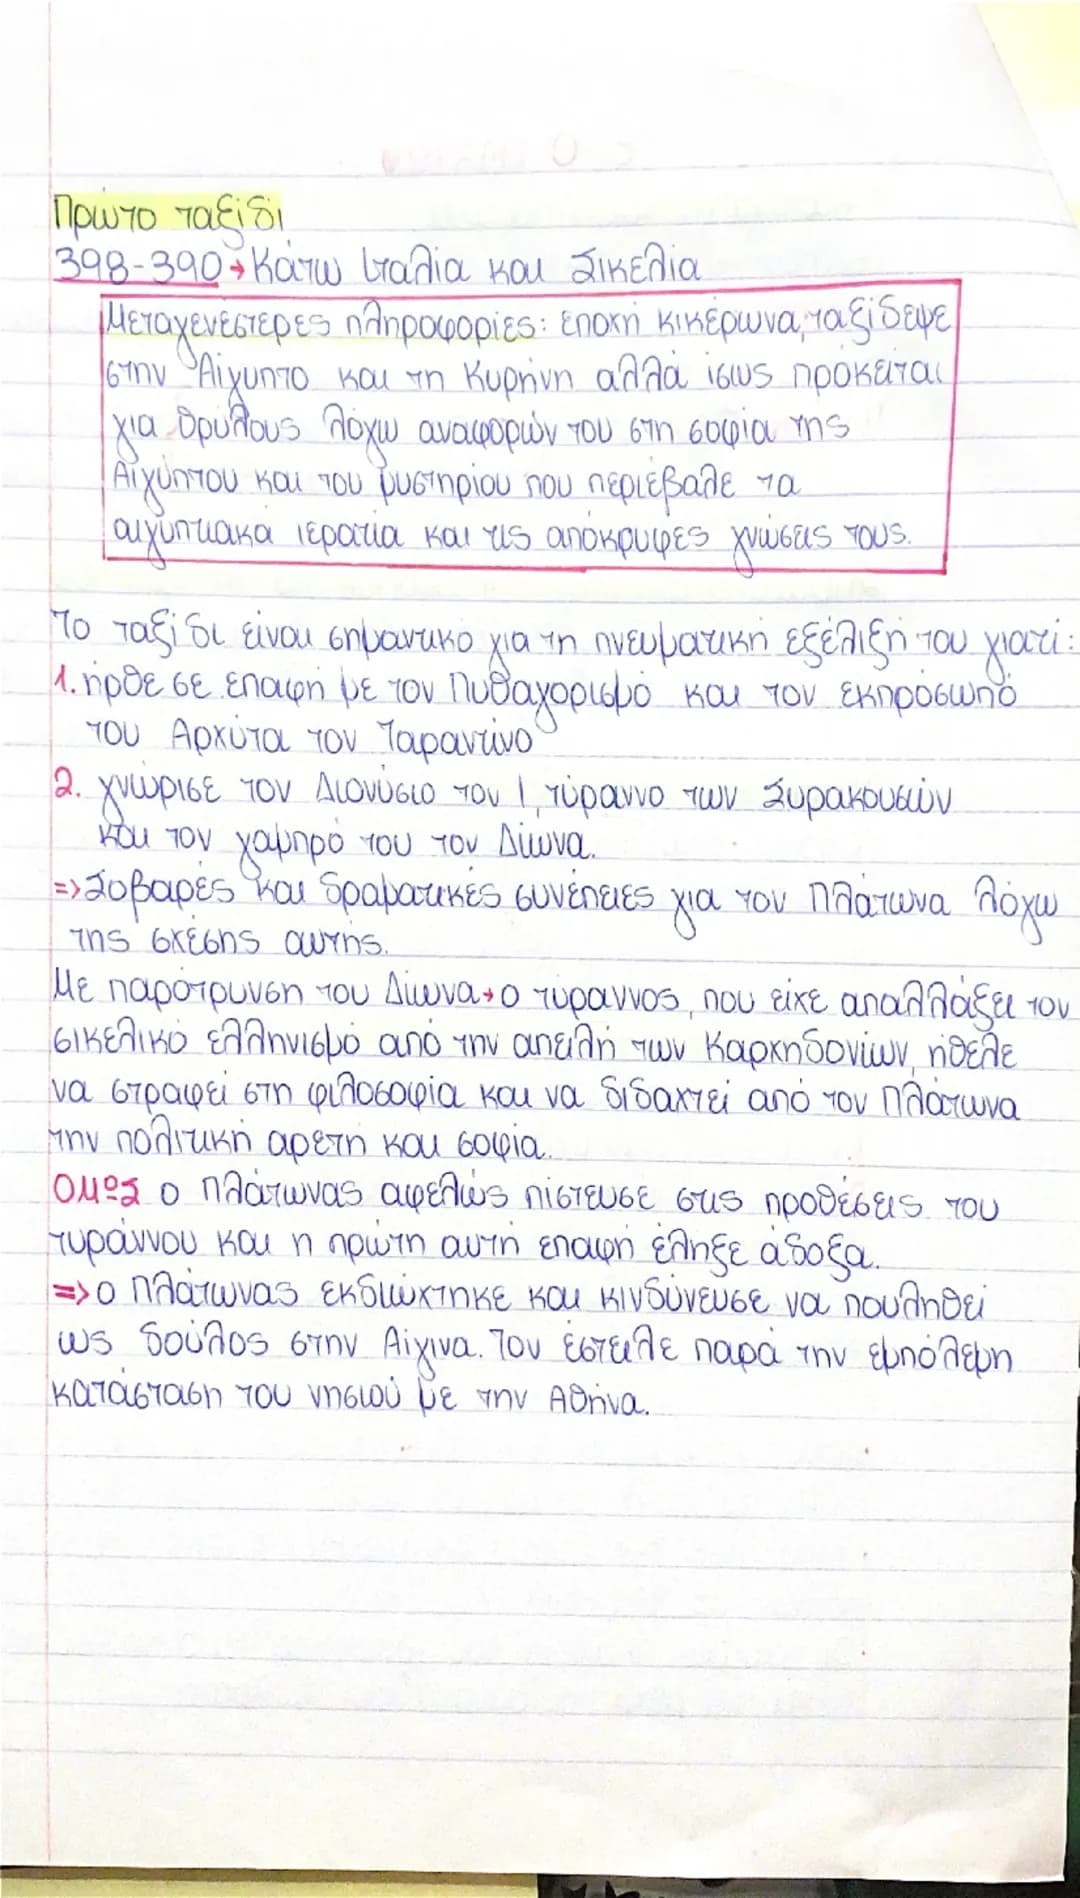 Πρώτο ταξίδι
398-390→Κάτω Ιταλία και Σικελία
Μεταγενέστερες πληροφορίες: εποχή Κικέρωνα, ταξίδεψε
στην Αίγυπτο και τη Κυρήνη αλλά ίσως πρόκειται
για θρύλους λόγω αναφορών του στη σοφία της
Αιγύπτου και του μυστηρίου που περιέβαλε τα
αιγυπτιακά ιερατία και τις απόκρυφες γνώσεις τους.
Το ταξίδι είναι σημαντικό για τη πνευματική εξέλιξή του γιατί:
1. ήρθε σε επαφή με τον Πυθαγορισμό και τον εκπρόσωπό
του Αρχύτα τον Ταραντίνο
2. γνώρισε τον Διονύσιο τον Ι, τύραννο των Συρακουσών
και τον γαμπρό του τον Δίωνα.
=> Σοβαρές και δραματικές συνέπειες για τον Πλάτωνα λόγω
της σχέσης αυτής.
Με παρότρυνση του Δίωνα→ο τύραννος, που είχε απαλλάξει τον
σικελικό ελληνισμό από την απειλή των Καρχηδονίων, ήθελε
να στραφεί στη φιλοσοφία και να διδαχτεί από τον Πλάτωνα
την πολιτική αρετή και σοφία.
ΟΜΩΣ ο Πλάτωνας αφελώς πίστευσε στις προθέσεις του
τυράννου και η πρώτη αυτή επαφή έληξε άδοξα.
=> ο Πλάτωνας εκδιώχτηκε και κινδύνευσε να πουληθεί
ως δούλος στην Αίγινα. Τον έστειλε παρά την εμπόλεμη
κατάσταση του νησιού με την Αθήνα.